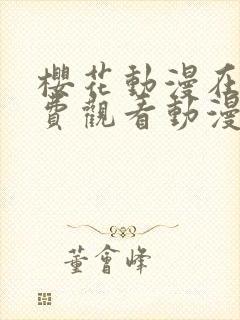 櫻花動漫在
費觀看動漫
董會峰